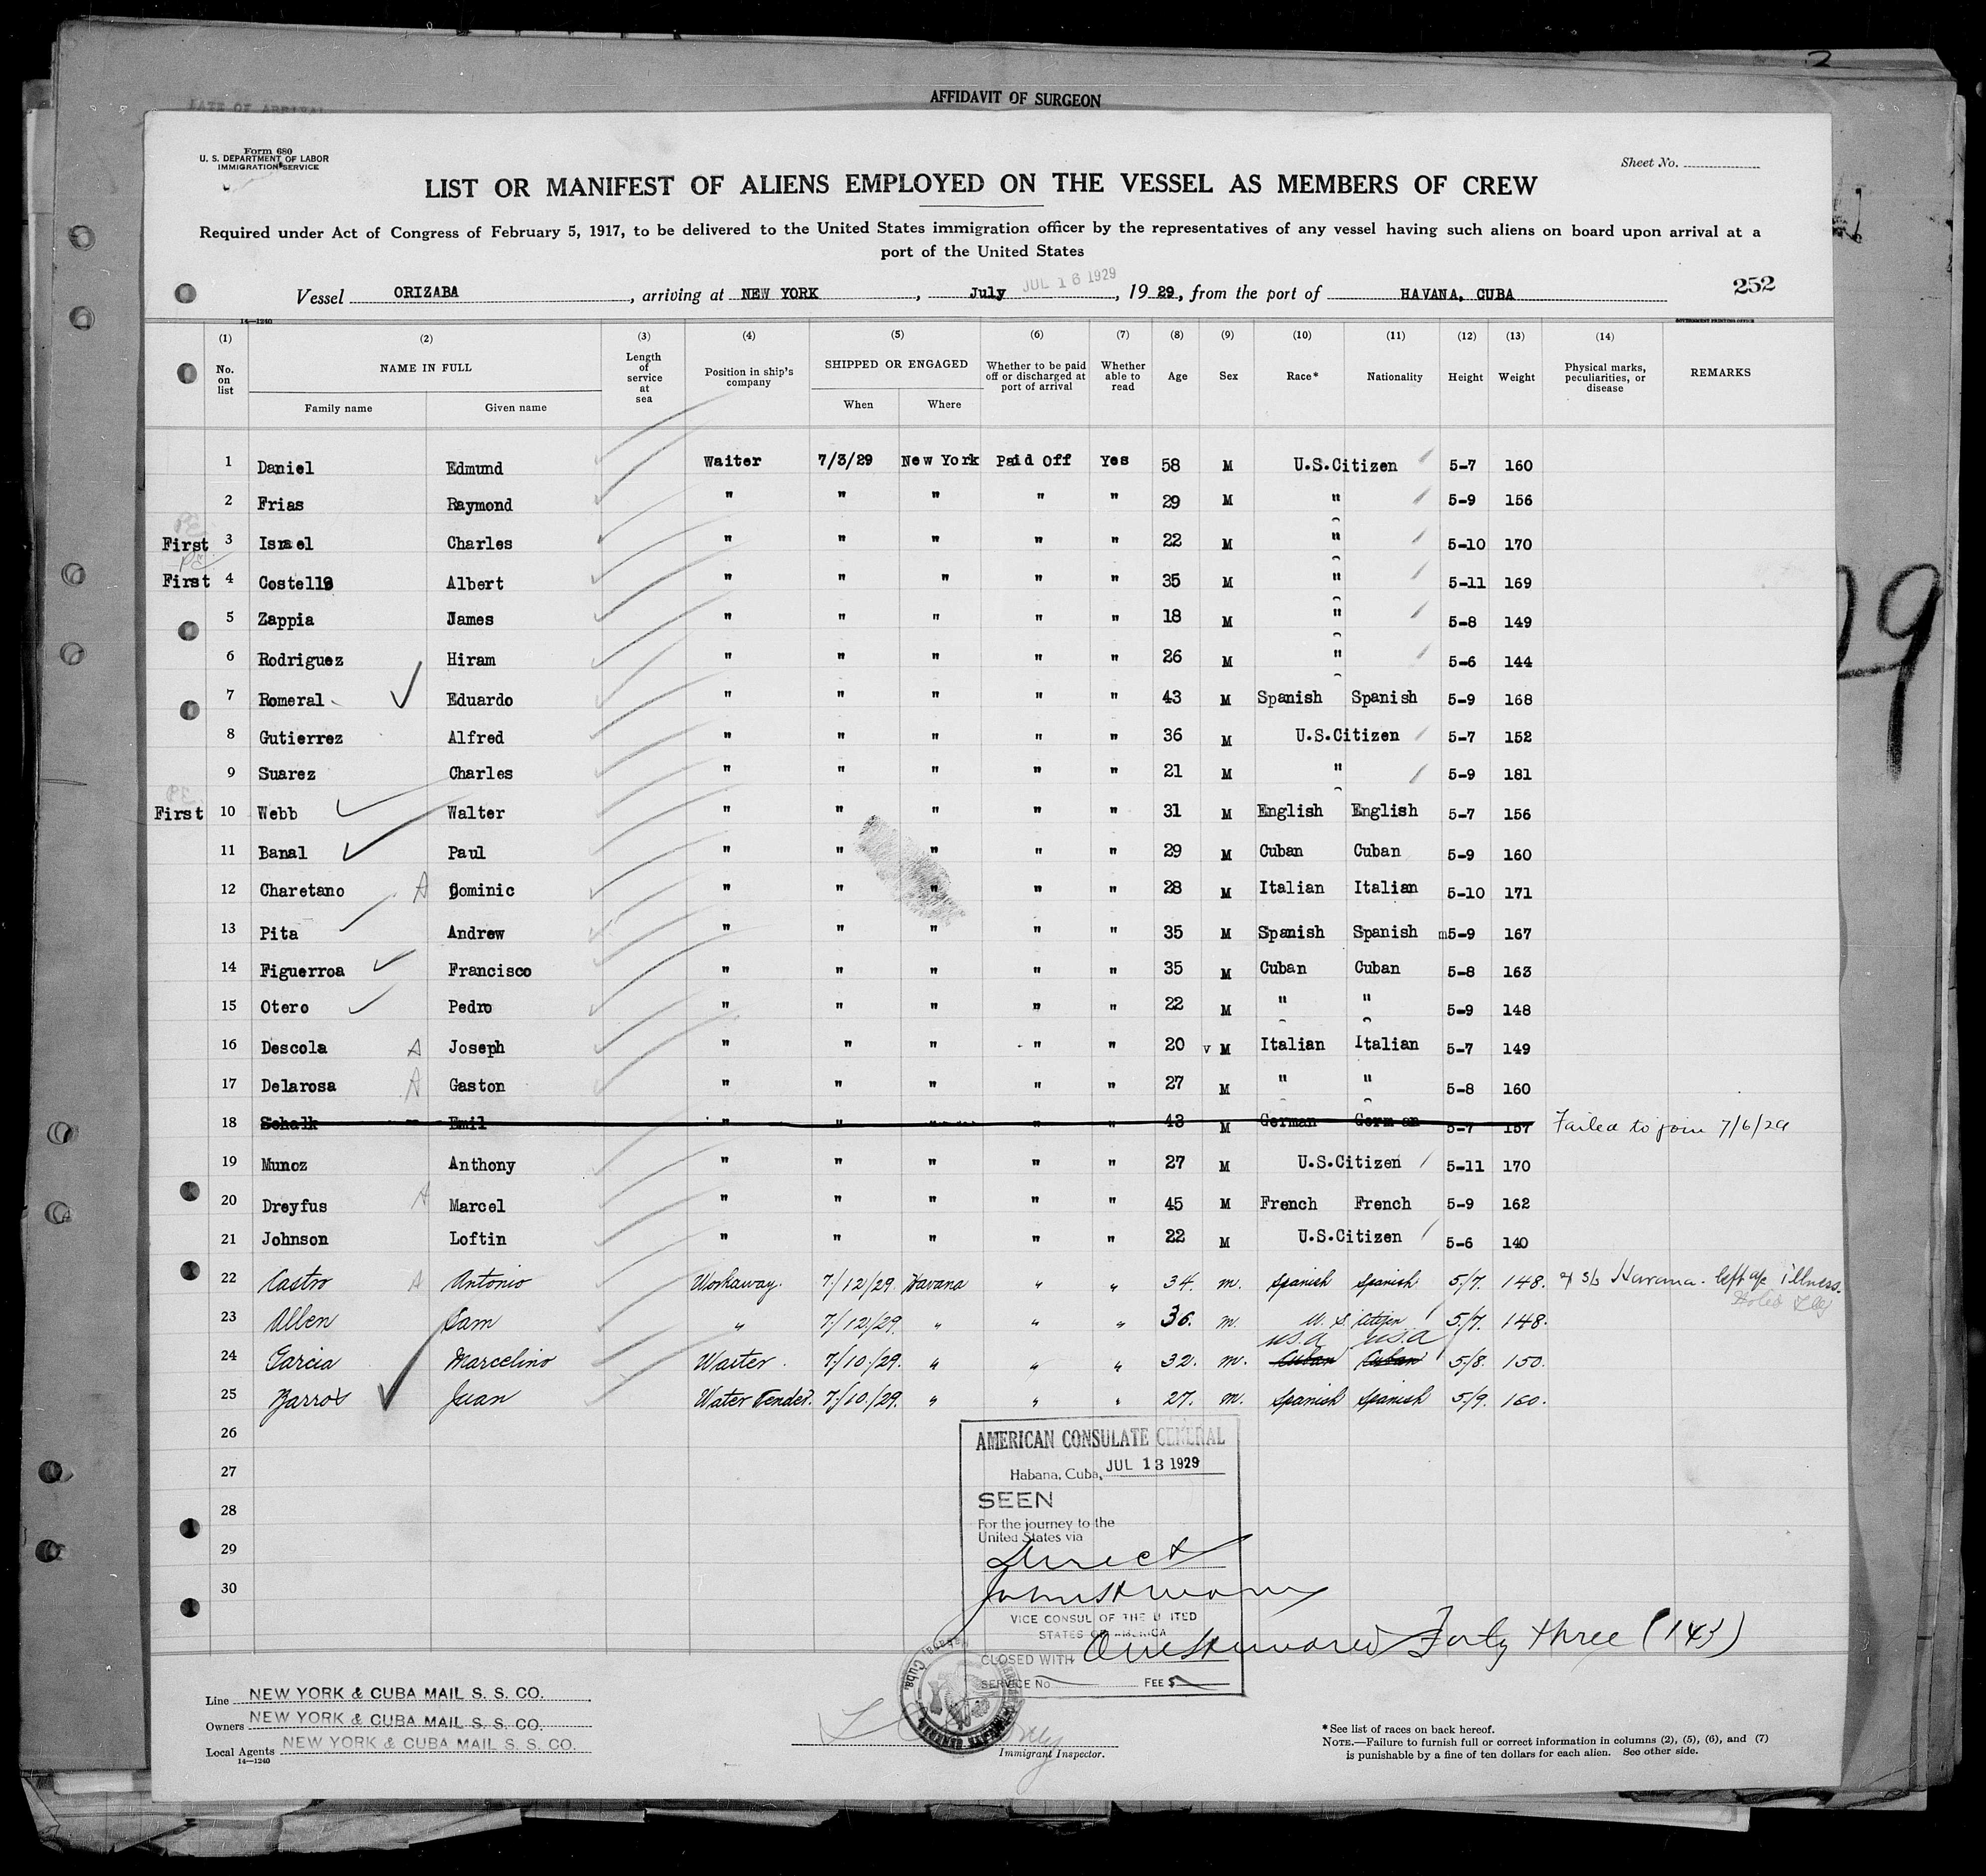 2
DATE OF ARRIVAL
AFFIDAVIT OF SURGEON
Form 680
U. S. DEPARTMENT OF LABOR
IMMIGRATION SERVICE
Sheet No.
LIST OR MANIFEST OF ALIENS EMPLOYED ON THE VESSEL AS MEMBERS OF CREW
Required under Act of Congress of February 5, 1917, to be delivered to the United States immigration officer by the representatives of any vessel having such aliens on board upon arrival at a
port of the United States
JUL 16 1929
Vessel ORIZABA, arriving at NEW YORK, July, 1929, from the port of HAVANA, CUBA 252
14—1240 GOVERNMENT PRINTING OFFICE
(1) (2) (3) (4) (5) (6) (7) (8) (9) (10) (11) (12) (13) (14)
No. on list NAME IN FULL Length of service at sea Position in ship's company SHIPPED OR ENGAGED Whether to be paid off or discharged at port of arrival Whether able to read Age Sex Race* Nationality Height Weight Physical marks, peculiarities, or disease REMARKS
Family name Given name When Where
1 Daniel Edmund Waiter 7/3/29 New York Paid Off Yes 58 M U.S.Citizen 5-7 160
2 Frias Raymond " " " " " 29 M " 5-9 156
PE
First 3 Israel Charles " " " " " 22 M " 5-10 170
PE
First 4 Costello Albert " " " " " 35 M " 5-11 169
5 Zappia James " " " " " 18 M " 5-8 149
6 Rodriguez Hiram " " " " " 26 M " 5-6 144
7 Romeral Eduardo " " " " " 43 M Spanish Spanish 5-9 168
8 Gutierrez Alfred " " " " " 36 M U.S.Citizen 5-7 152
9 Suarez Charles " " " " " 21 M " 5-9 181
PE
First 10 Webb Walter " " " " " 31 M English English 5-7 156
11 Banal Paul " " " " " 29 M Cuban Cuban 5-9 160
12 Charetano A Dominic " " " " " 28 M Italian Italian 5-10 171
13 Pita Andrew " " " " " 35 M Spanish Spanish m5-9 167
14 Figuerroa Francisco " " " " " 35 M Cuban Cuban 5-8 163
15 Otero Pedro " " " " " 22 M " " 5-9 148
16 Descola A Joseph " " " " " 20 v M Italian Italian 5-7 149
17 Delarosa A Gaston " " " " " 27 M " " 5-8 160
18 Schalk Emil " " " " " 43 M German German 5-7 157 Failed to join 7/6/29
19 Munoz Anthony " " " " " 27 M U.S.Citizen 5-11 170
20 Dreyfus A Marcel " " " " " 45 M French French 5-9 162
21 Johnson Loftin " " " " " 22 M U.S.Citizen 5-6 140
22 Castro A Antonio Workaway. 7/12/29. Havana " " 34. m. Spanish Spanish 5/7. 148. Havana. left illness.
23 Allen Sam " 7/12/29. " " " 36. m. U.S. Citizen 5/7. 148.
USA USA
24 Garcia Marcelino Waiter. 7/10/29. " " " 32. m. Cuban Cuban 5/8. 150.
25 Barros Juan Water Tender. 7/10/29. " " " 27. m. Spanish Spanish 5/9. 160.
26
27
28
29
30
AMERICAN CONSULATE GENERAL
Habana, Cuba, JUL 13 1929
SEEN
For the journey to the
United States via
Direct
VICE CONSUL OF THE UNITED
STATES OF AMERICA
CLOSED WITH One Hundred Forty three (143)
SERVICE No. FEE $
Line NEW YORK & CUBA MAIL S. S. CO.
Owners NEW YORK & CUBA MAIL S. S. CO.
Local Agents NEW YORK & CUBA MAIL S. S. CO.
14—1240
Immigrant Inspector.
*See list of races on back hereof.
NOTE.—Failure to furnish full or correct information in columns (2), (5), (6), and (7)
is punishable by a fine of ten dollars for each alien. See other side.